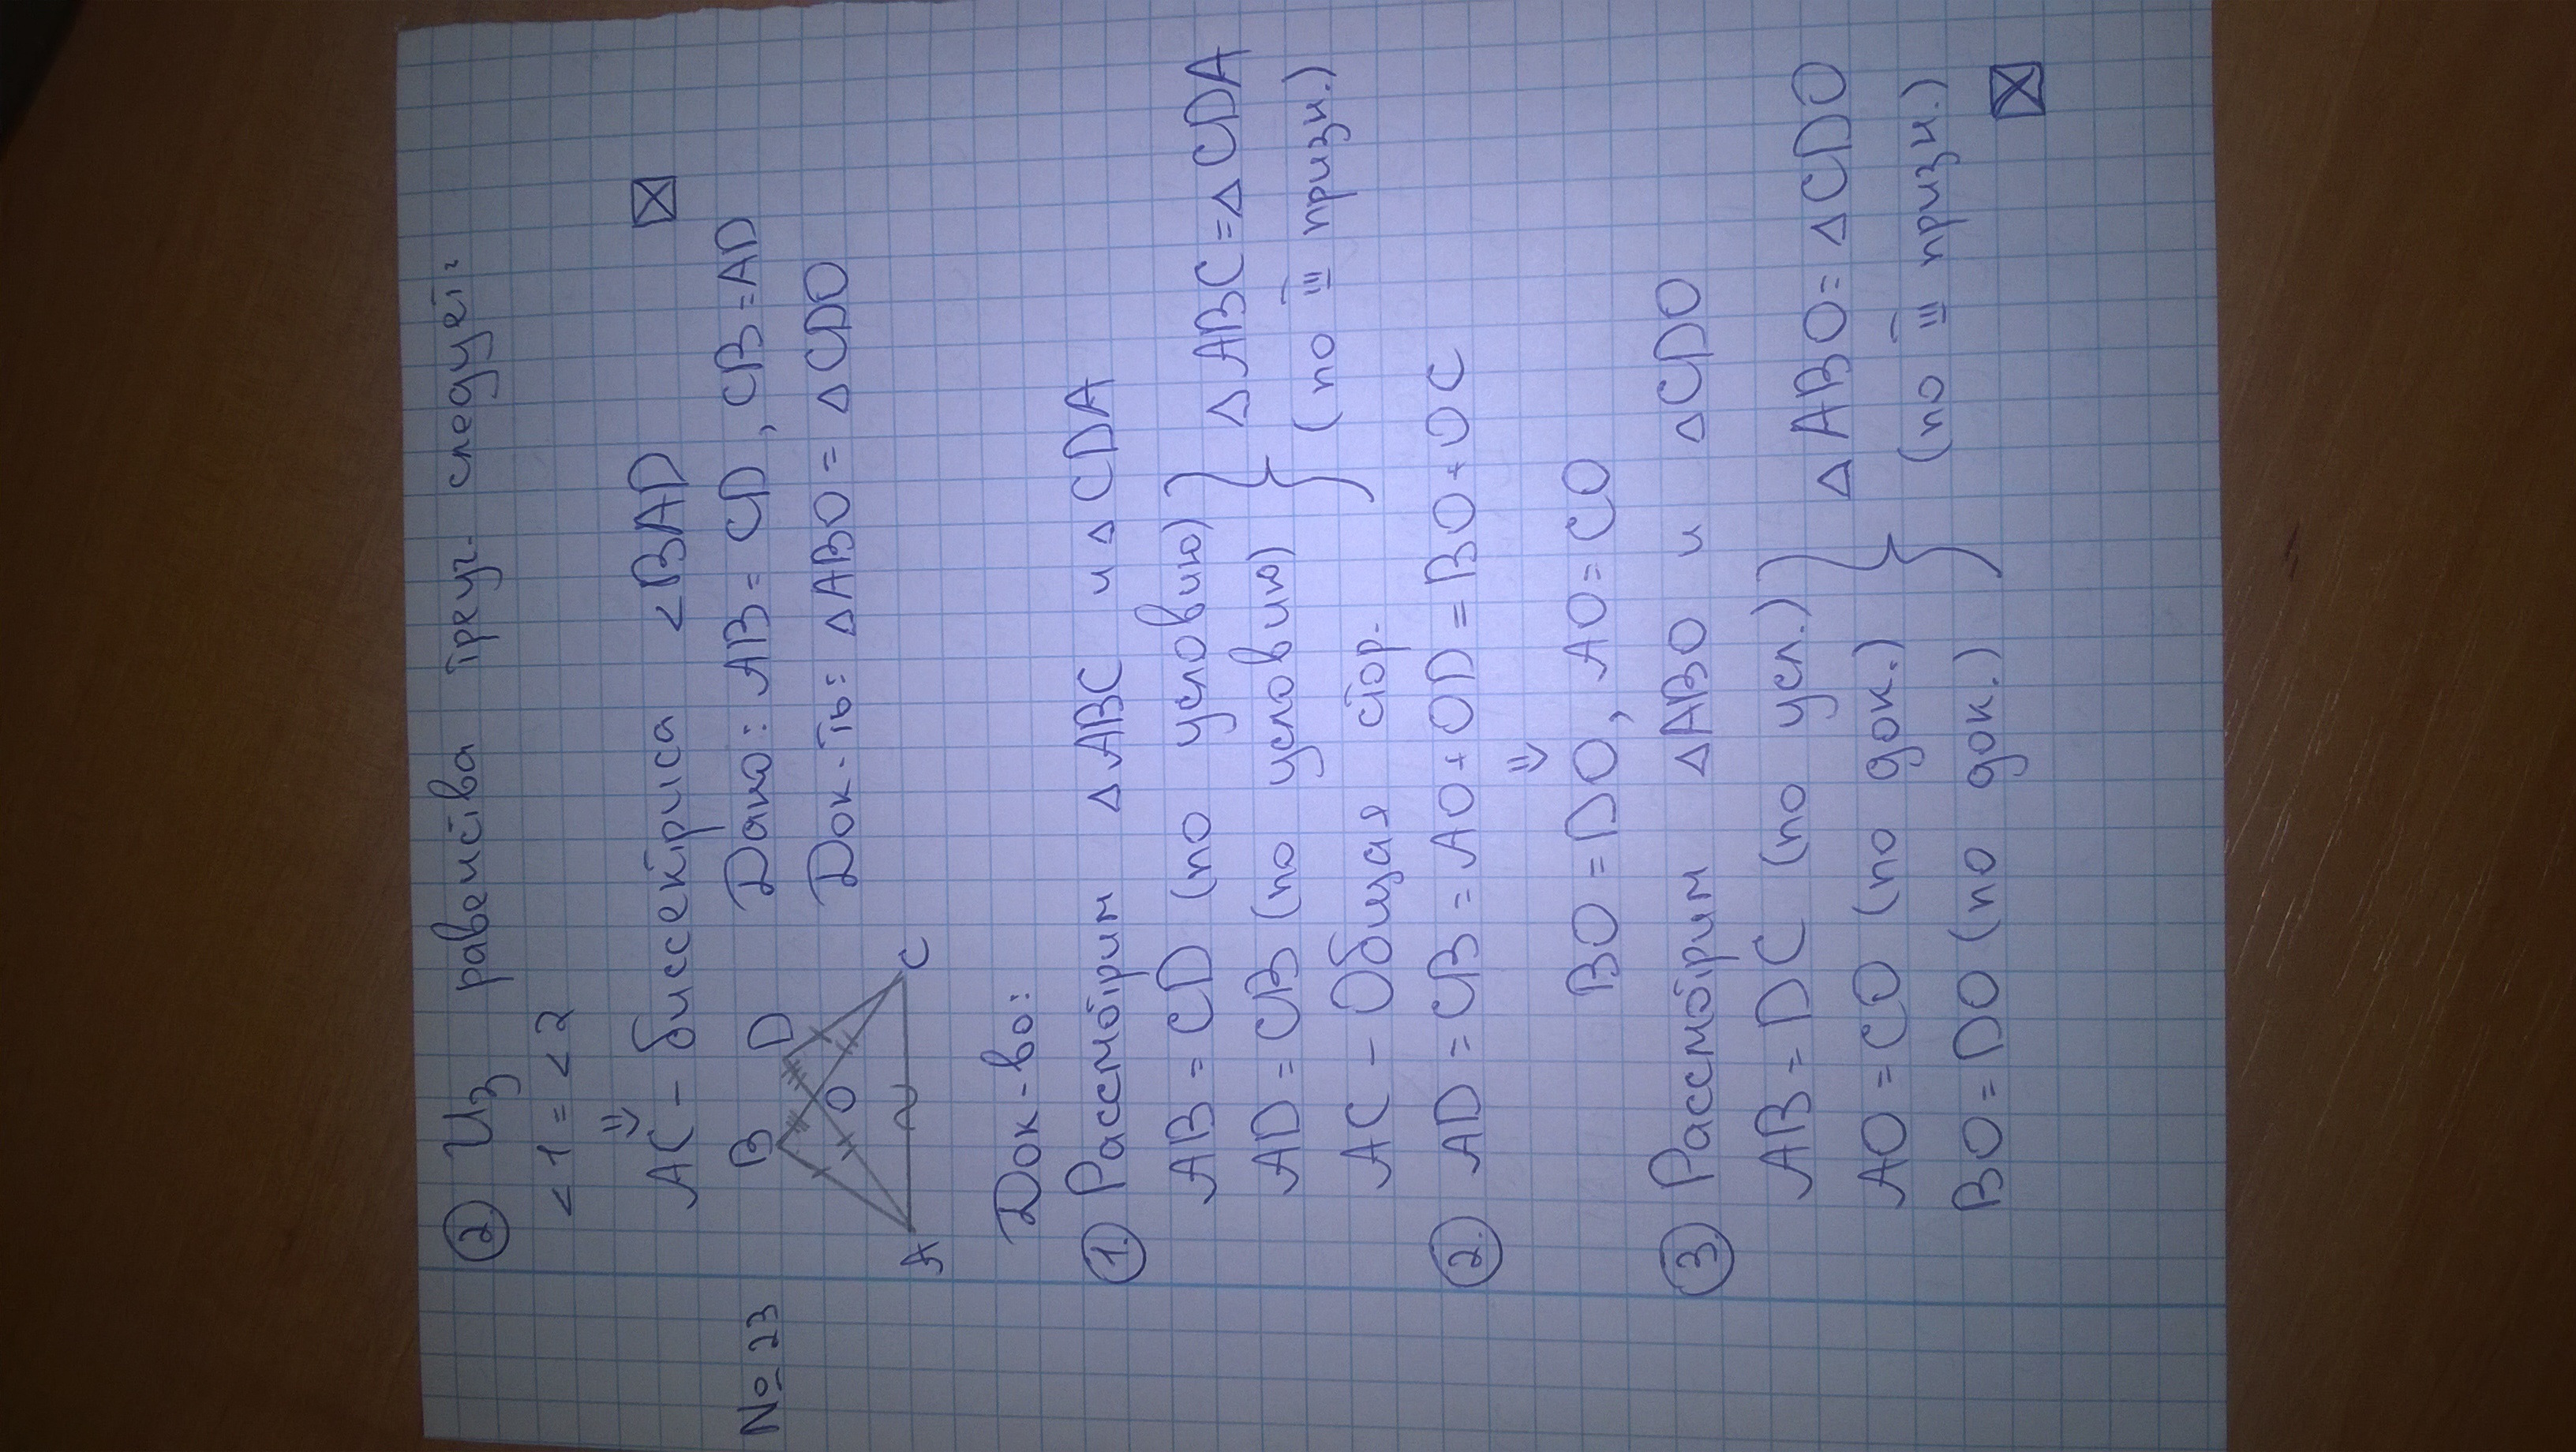 ② Из равенства треуг. следует:
<1 = <2
⇓
AC - биссектриса <BAD ☒
№ 23
Дано: AB = CD, CB = AD
Док-ть: △ABO = △CDO
B D
O
A C
Док-во:
① Рассмотрим △ABC и △CDA
AB = CD (по условию)
AD = CB (по условию)
AC - Общая стор.
} △ABC = △CDA
(по III призн.)
② AD = CB = AO + OD = BO + OC
⇓
BO = DO, AO = CO
③ Рассмотрим △ABO и △CDO
AB = DC (по усл.)
AO = CO (по док.)
BO = DO (по док.)
} △ABO = △CDO
(по III призн.)
☒